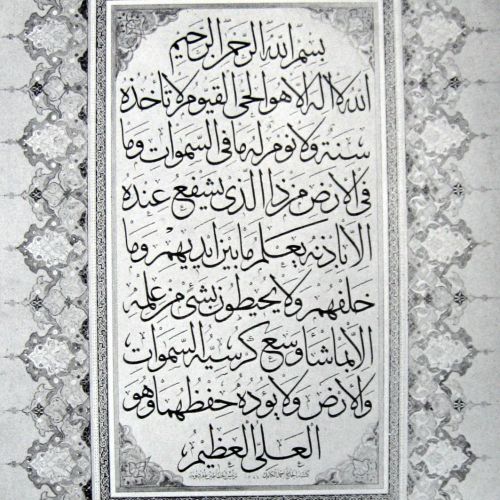 بسم الله الرحمن الرحيم
الله لا اله الا هو الحي القيوم لا تاخذه
سنة ولا نوم له ما في السموات وما
في الارض من ذا الذي يشفع عنده
الا باذنه يعلم ما بين ايديهم وما
خلفهم ولا يحيطون بشئ من علمه
الا بما شا وسع كرسيه السموات
والارض ولا يوده حفظهما وهو
العلي العظيم